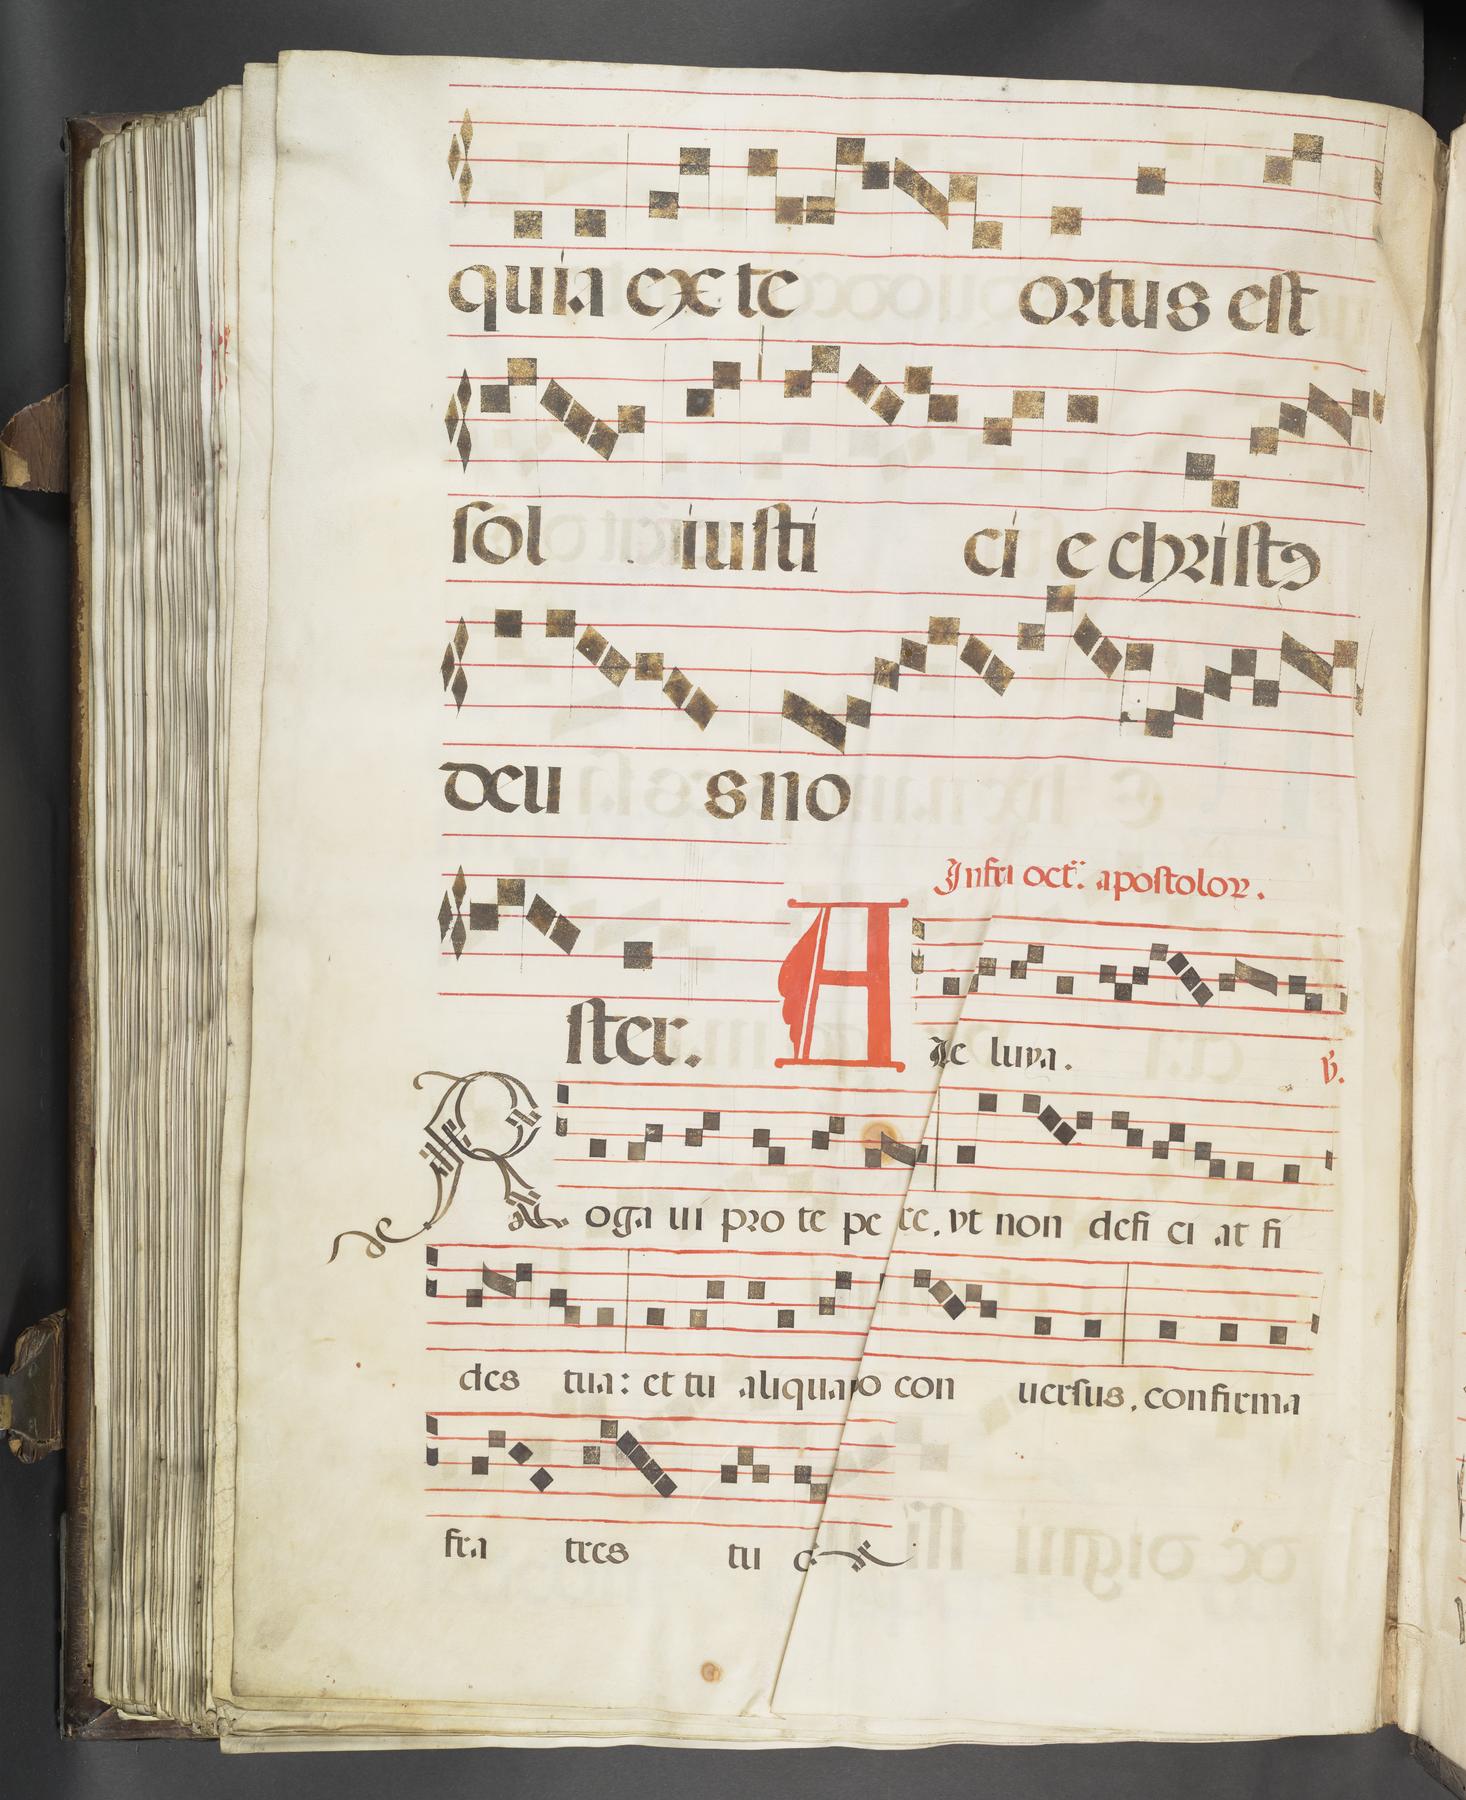 quia ex te ortus est
sol iusti ci e christꝰ
deu s no
ster.
Infra oct. apostoloꝝ.
A le luya. ℣.
R oga ui pro te pe tre, vt non defi ci at fi
des tua: et tu aliquãdo con uersus, confirma
fra tres tu os